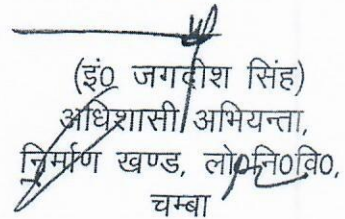 (इं0 जगदीश सिंह)
अधिशासी अभियन्ता,
निर्माण खण्ड, लो0नि0वि0,
चम्बा